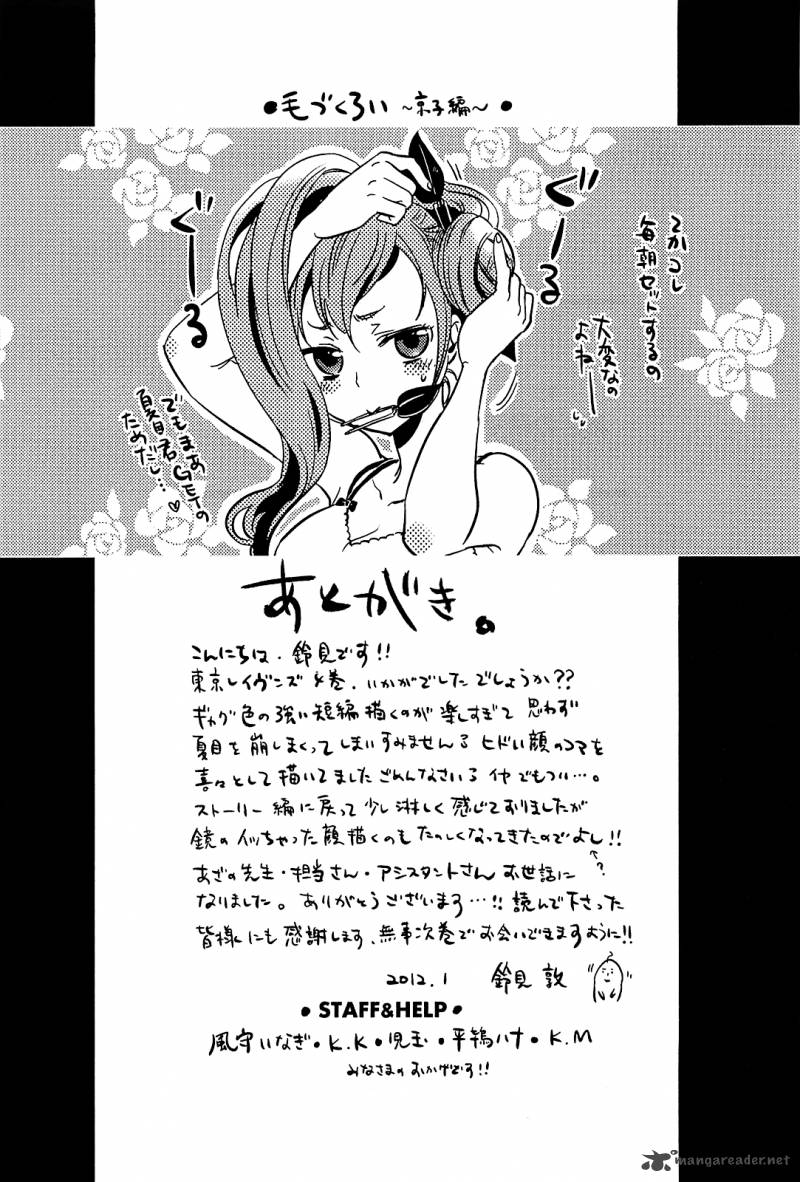 ●毛づくろい ～京子編～●
ぐーる
ぐーる
てかコレ
毎朝セットするの
大変なの
よねー
でもまあ
夏目君GETの
ためだし…♡
あとがき。
こんにちは、鈴見です!!
東京レイヴンズ 4巻、いかがでしたでしょうか??
ギャグ色の強い短編描くのが楽しすぎて 思わず
夏目を崩しまくってしまいすみませんる ヒドい顔のコマを
喜々として描いてました ごめんなさいる イヤでもつい…。
ストーリー編に戻って少し淋しく感じておりましたが
鏡のイッちゃった顔描くのもたのしくなってきたのでよし!!
↑?
あざの先生・担当さん・アシスタントさん お世話に
なりました。ありがとうございます…!! 読んで下さった
皆様にも感謝します、無事次巻でお会いできますように!!
2012.1 鈴見 敦
● STAFF&HELP ●
風守いなぎ・K.K・児玉・平鴇ハナ・K.M
みなさまのおかげです!!
mangareader.net